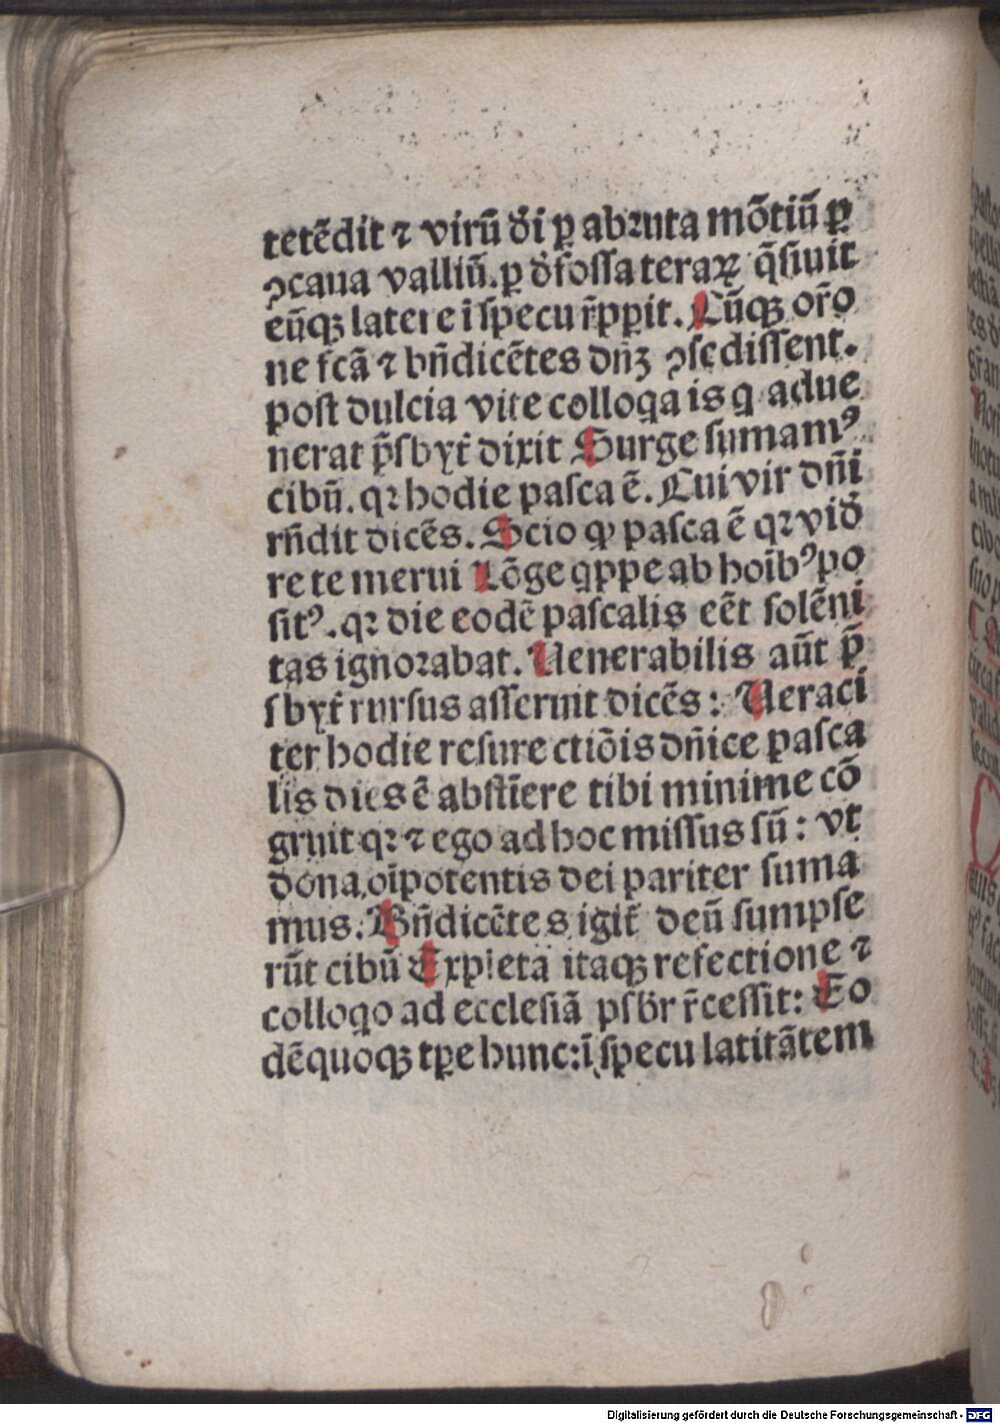 tetēdit ⁊ virū d̄i ꝑ abꝛuta mōtiū ꝑ
ꝯcaua valliū. ꝑ d̄fossa teraꝝ q̄siuit
eūqꝫ latere i specu r̄pꝑit. Cūqꝫ or̄o
ne fcā ⁊ bn̄dicētes dn̄ꝫ ꝯsedissent.
post dulcia vite colloqa is q adue
nerat p̄sbyt̄ dixit Surge sumamꝰ
cibū. qꝛ hodie pasca ē. Cui vir dn̄i
rn̄dit dicēs. Scio ꝙ pasca ē qꝛ vid̄
re te merui Lōge qppe ab hoībꝰ po
sitꝰ. qꝛ die eodē pascalis eēt solēni
tas ignoꝛabat. Uenerabilis aūt p̄
sbyt̄ rursus asseruit dicēs: Ueraci
ter hodie resurectiōis dn̄ice pasca
lis dies ē abstīere tibi minime cō
gruit qꝛ ⁊ ego ad hoc missus sū: vt
dona oīpotentis dei pariter suma
mus. Bn̄dicētes igit̄ deū sumpse
rūt cibū Expleta itaqꝫ refectione ⁊
colloqo ad ecclesiā psbr̄ r̄cessit: Eo
dēquoqꝫ tꝑe hunc: ī specu latitātem
Digitalisierung gefördert durch die Deutsche Forschungsgemeinschaft - DFG